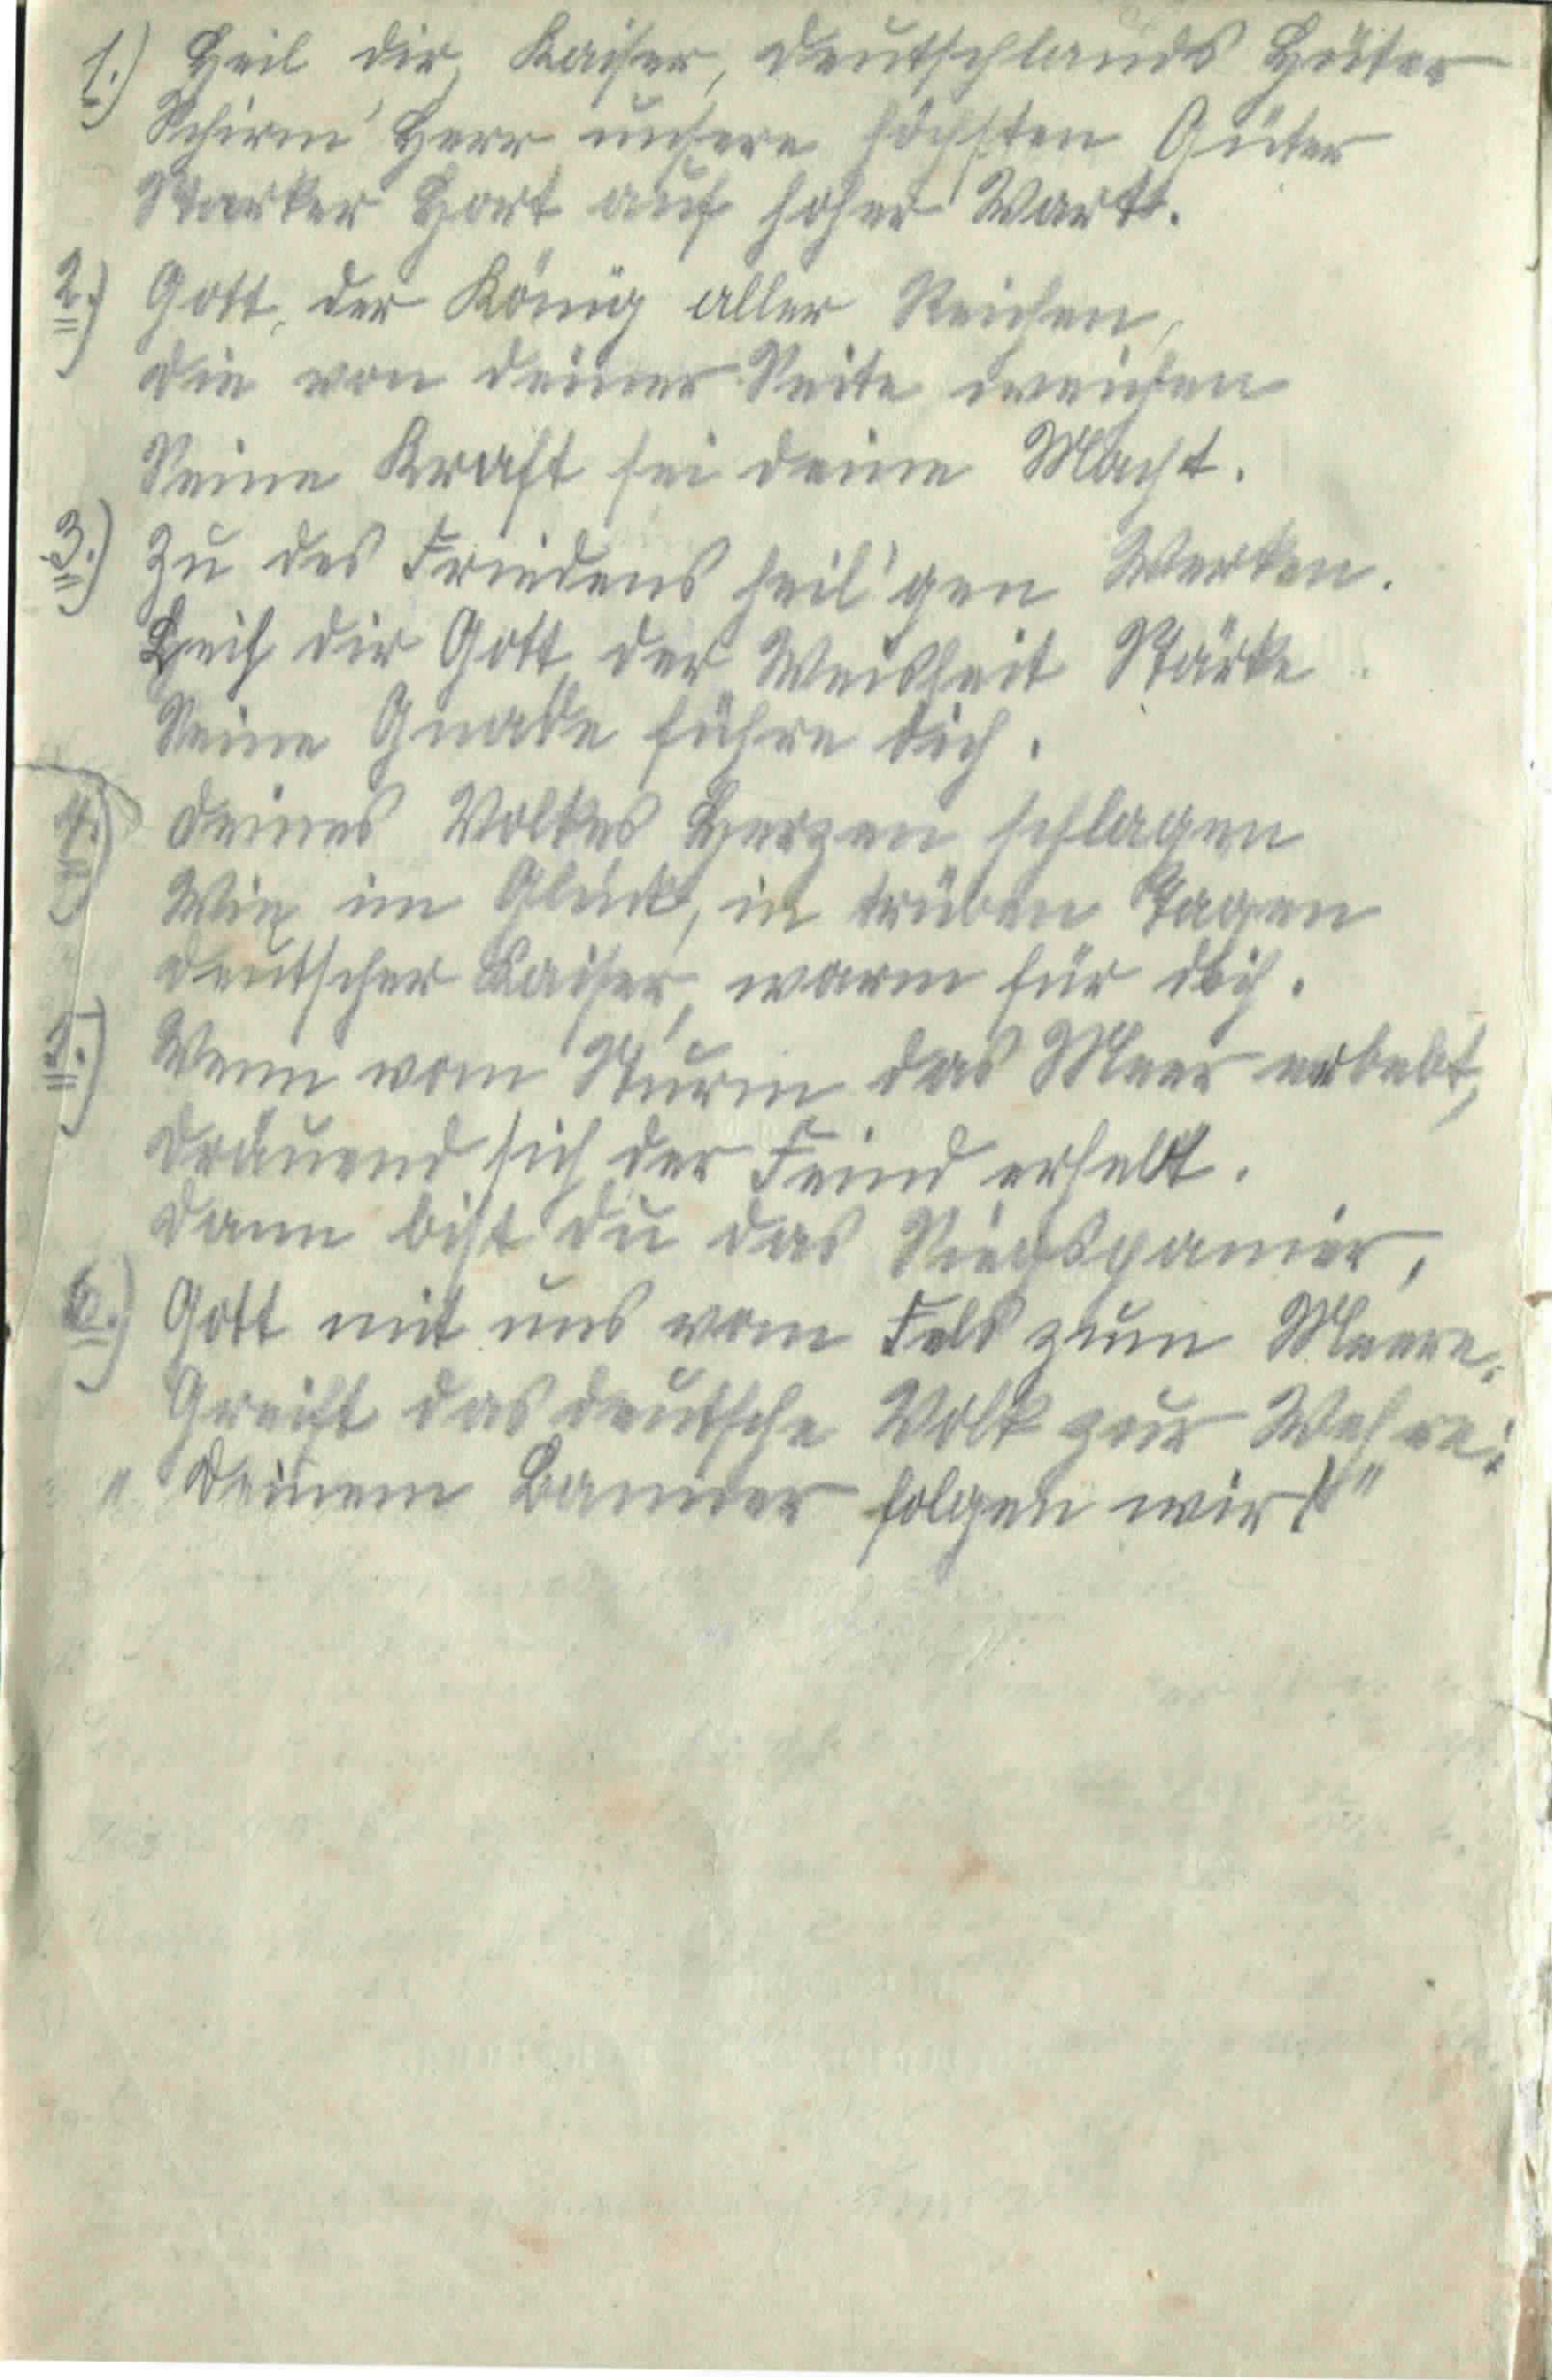 1.) Heil dir, Kaiser, Deutschlands Hüter
Schirm' Herr unsere höchsten Güter
Starker Hort auf hoher Wart.
2.) Gott, der König aller Reichen,
Die von deiner Seite weichen
Seine Kraft sei deine Macht.
3.) Zu des Friedens heil'gen Werken.
Leih dir Gott der Weisheit Stärke
Seine Gnade führe dich.
4.) Deines Volkes Herzen schlagen
Wie im Glück, in trüben Tagen
Deutscher Kaiser, warm für dich.
5.) Wenn vom Sturm das Meer erbebt,
Dräuend sich der Feind erhebt.
Dann bist du das Siegspanier,
6.) Gott mit uns vom Fels zum Meere.
Greift das deutsche Volk zur Wehre:
„Deinem Banner folgen wir!"